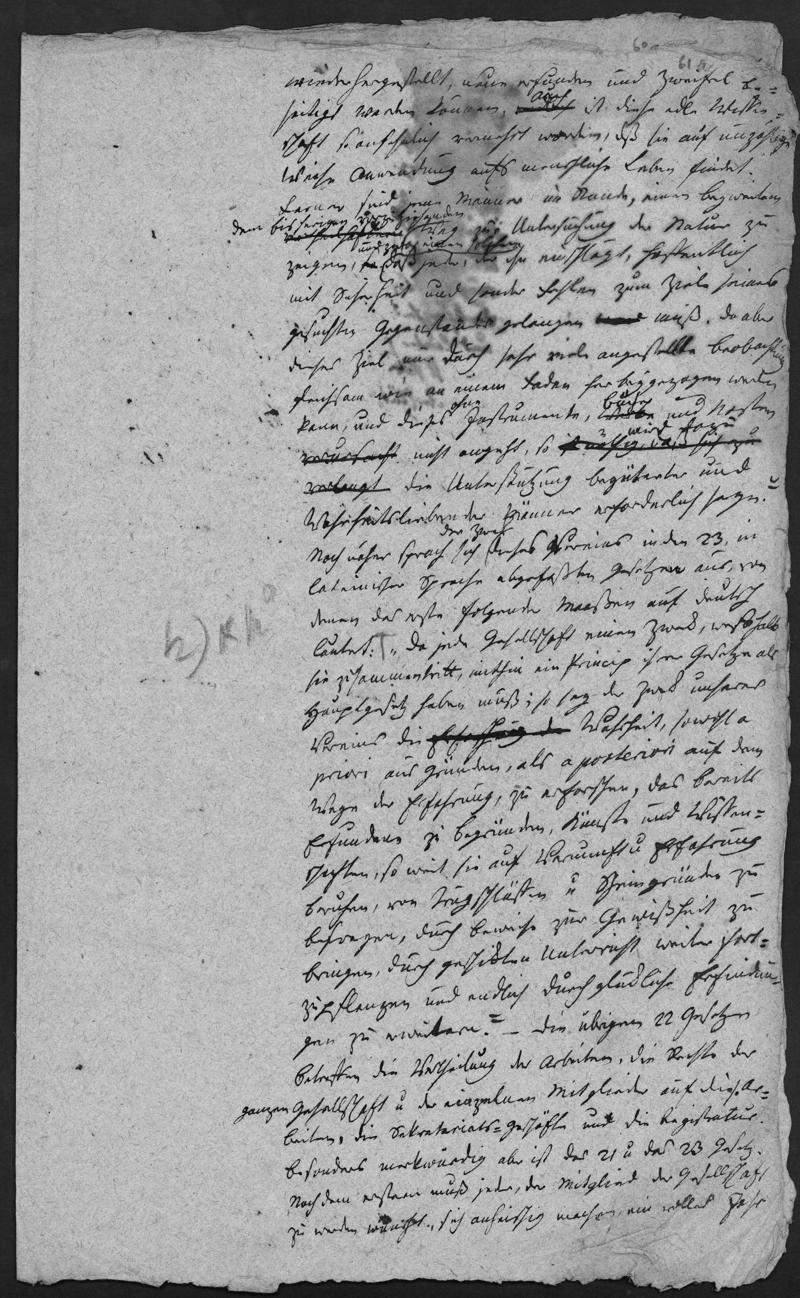 60a
61a
wiederhergestellt, neue erfunden und Zweifel be-
seitigt werden können, auch ist diese edle Wissen-
schaft so ansehnlich vermehrt worden, daß sie auf unzählige
Weise Anwendung aufs menschliche Leben findet.
Ferner sind jene Männer im Stande, einen bequemen
dem bisherigen vorzuziehenden Weg zur Untersuchung der Natur zu
und zwar einen solchen
zeigen, daß jeder, der ihn einschlägt, hoffentlich
mit Sicherheit und sonder Fehlen zum Ziele seines
gesuchten Gegenstandes gelangen muß. Da aber
dieses Ziel nur durch sehr viele angestellte Beobachtung
gleichsam wie an einem Faden herbeygezogen werden
kann, und dieses ohne Instrumente, Bücher und Kosten
nicht angeht, so wird dazu
die Unterstützung begüterter und
Wahrheitsliebender Männer erforderlich seyn."
Noch näher sprach sich der Zweck dieses Vereins in den 23, in
lateinischer Sprache abgefaßten Gesetzen aus, von
denen das erste folgender Maaßen auf deutsch
lautet: „Da jede Gesellschaft einen Zweck, weßhalb
sie zusammentritt, mithin ein Princip ihrer Gesetze als
Hauptgesetz haben muß; so sey der Zweck unseres
Vereins die Wahrheit, sowohl a
priori aus Gründen, als a posteriori auf dem
Wege der Erfahrung, zu erforschen, das bereits
Erfundene zu begründen, Künste und Wissen-
schaften, so weit sie auf Vernunft u Erfahrung
beruhen, von Trugschlüssen u Scheingründen zu
befreyen, durch Beweise zur Gewißheit zu
bringen, durch geschickten Unterricht weiter fort-
zupflanzen und endlich durch glückliche Erfindun-
gen zu erweitern." – Die übrigen 22 Gesetze
betreffen die Vertheilung der Arbeiten, die Rechte der
ganzen Gesellschaft u der einzelnen Mitglieder auf diese Ar-
beiten, die Sekretariats-Geschäfte und die Registratur.
Besonders merkwürdig aber ist das 21 u das 23 Gesetz.
Nach dem erstern muß jeder, der Mitglied der Gesellschaft
zu werden wünscht, sich anheischig machen, ein volles Jahr